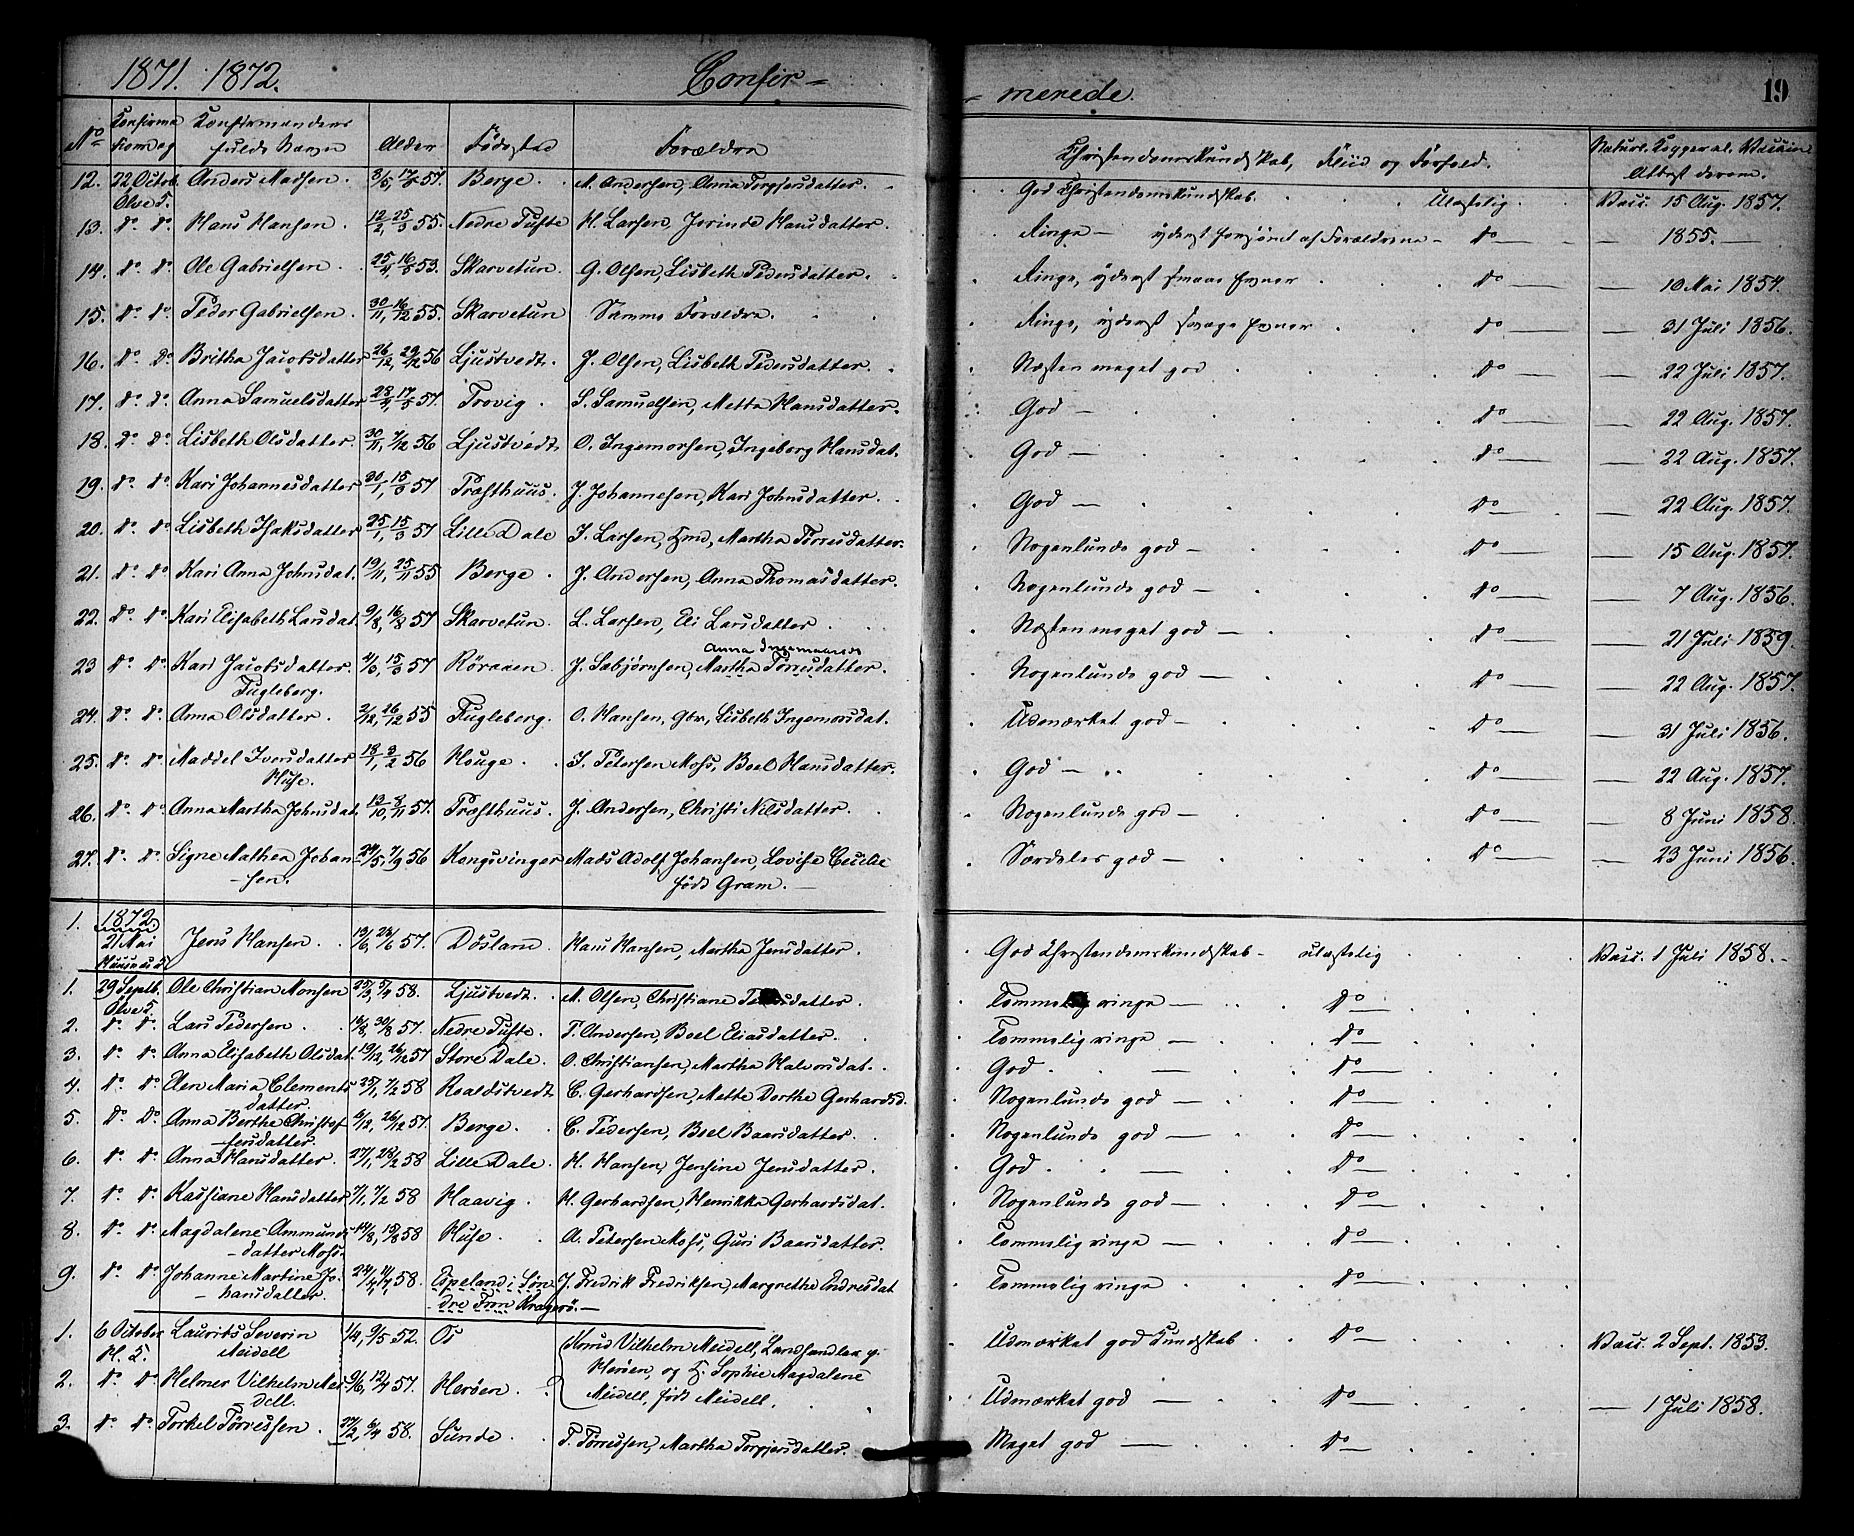 1871. 1872. Confir-
No Konfirma- Konfirmandens Alder Födested Forældre
tionsdag fulde Navn
12. 22 Octob. Anders Madsen. 3/5, 17/5 57. Berge. M. Andersen, Anna Torgjersdatter.
Ølve S.
13. do. do. Hans Hansen. 12/2, 25/3 55. Nedre Tufte. H. Larsen, Jorinde Hansdatter.
14. do. do. Ole Gabrielsen. 25/4, 16/5 53. Skarvetun. G. Olsen, Lisbeth Pedersdatter.
15. do. do. Peder Gabrielsen. 30/11, 16/12 55. Skarvetun Samme Forældre.
16. do. do. Britha Jacobsdatter 26/12, 29/12 56 Ljustvedt. J. Olsen, Lisbeth Pedersdatter.
17. do. do. Anna Samuelsdatter 28/4, 17/5 57. Trovig. S. Samuelsen, Mette Hansdatter.
18. do. do. Lisbeth Olsdatter. 30/11, 7/12 56 Ljustvedt. O. Ingemorsen, Ingeborg Hansdat.
19. do. do. Kari Johannesdatter 30/1, 15/3 57 Præsthuus. J. Johannesen, Kari Johnsdatter.
20. do. do. Lisbeth Isaksdatter 25/1, 15/3 57 Lille Dale I. Larsen, Hmd, Martha Torresdatter.
21. do. do. Kari Anna Johnsdat. 19/11, 25/11 55 Berge. J. Andersen, Anna Thomasdatter.
22. do. do. Kari Elisabeth Larsdat. 9/8, 16/8 57 Skarvetun. L. Larsen, Eli Larsdatter.
Anna Ingemorsd
23 do. do. Kari Jacobsdatter. 4/3, 15/3 57 Röraaen. J. Sabjørnsen, Martha Torresdatter.
Fugleberg.
24. do. do. Anna Olsdatter. 2/12, 26/12 55 Fugleberg. O. Hansen, Gbr, Lisbeth Ingemorsdat.
25. do. do. Maddel Iversdatter 18/1, 3/2 56 Houge. I. Petersen Moss, Boel Hansdatter.
Huse.
26. do. do. Anna Martha Johnsdat. 13/10, 8/11 57. Præsthuus. J. Andersen, Christi Nilsdatter.
27. do. do. Signe Mathea Johan- 24/5, 7/9 56 Kongsvinger Mads Adolf Johansen, Lovise Cecilie
-sen. født Gram.
1. 1872
21 Mai Jens Hansen. 13/6, 28/6 57. Døsland. Hans Hansen, Martha Jensdatter.
Huusnæs S
1. 29 Septb. Ole Christian Monsen 25/3, 5/4 58. Ljustvedt. M. Olsen, Christiane Pedersdatter.
Ølve S.
2. do. do. Lars Pedersen. 16/8, 30/8 57. Nedre Tufte. P. Andersen, Boel Eliasdatter.
3. do. do. Anna Elisabeth Olsdat. 19/12, 26/12 57 Store Dale. O. Christiansen, Martha Halvorsdat.
4. do. do. Elen Maria Clements 25/1, 7/2 58 Roaldstvedt C. Gerhardsen, Mette Dorthe Gerhardsd.
datter.
5. do. do. Anna Berthe Christof- 6/12, 26/12 57. Berge. C. Pedersen, Boel Baarsdatter.
-fersdatter.
6. do. do. Anna Hansdatter. 27/1, 28/2 58 Lille Dale. H. Hansen, Jensine Jensdatter.
7. do. do. Kassiane Hansdatter 7/1, 7/2 58 Haavig. H. Gerhardsen, Henrikka Gerhardsdat.
8. do. do. Magdalene Ammunds- 14/8, 15/8 58 Huse. A. Petersen Moss, Guri Baarsdatter.
-datter Moss.
9. do. do. Johanne Martine Jo- 24/4, 11/7 58. Espeland i Søn- J. Fredrik Fredriksen, Margrethe Endresdat
-hansdatter. -dre From Kragerö.
1. 6 October Laurits Severin 1/4, 9/5 52. Os Knud Vilhelm Meidell, Landhandler p.
H. S. Meidell Herøen, og H. Sophie Magdalene
2. do. do. Helmer Vilhelm Mei- 9/6, 12/7 57. Herøen. Meidell, født Meidell.
dell.
3. do. do. Torkel Torressen. 22/2, 6/4 58. Sunde. T. Torressen, Martha Torgjersdatter.
-merede. 19
Christendomskundskab, Fliid og Forhold. Naturl. Kopper el. Vaccin
Attest derom.
God Christendomskundskab. Ulastelig. Vacc. 15 Aug. 1857.
Ringe - yderst forsømt af Forældrene - do - 1855.
Ringe, yderst smaae Evner do 10 Mai 1854.
Ringe, yderst svage Evner do 31 Juli 1856.
Næsten meget god do 22 Juli 1857.
God do 22 Aug. 1857.
God do 22 Aug. 1857.
God do 22 Aug. 1857.
Nogenlunde god do 15 Aug. 1857.
Nogenlunde god do 7 Aug. 1856.
Næsten meget god do 21 Juli 1859.
Nogenlunde god do 22 Aug. 1857.
Udmærket god do 31 Juli 1856.
God do 22 Aug. 1857.
Nogenlunde god do 8 Juni 1858.
Særdeles god do 23 Juni 1856.
God Christendomskundskab - ulastelig Vacc. 1 Juli 1858.
Temmelig ringe do
Temmelig ringe do
God do
Nogenlunde god do
Nogenlunde god do
God do
Nogenlunde god do
Temmelig ringe do
Temmelig ringe do
Udmærket god Kundskab do Vacc. 2 Sept. 1853.
Udmærket god do 1 Juli 1858.
Meget god do